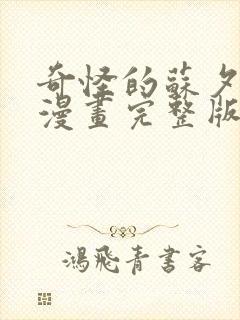 奇怪的蘇夕
漫畫完整版
鴻飛青書客